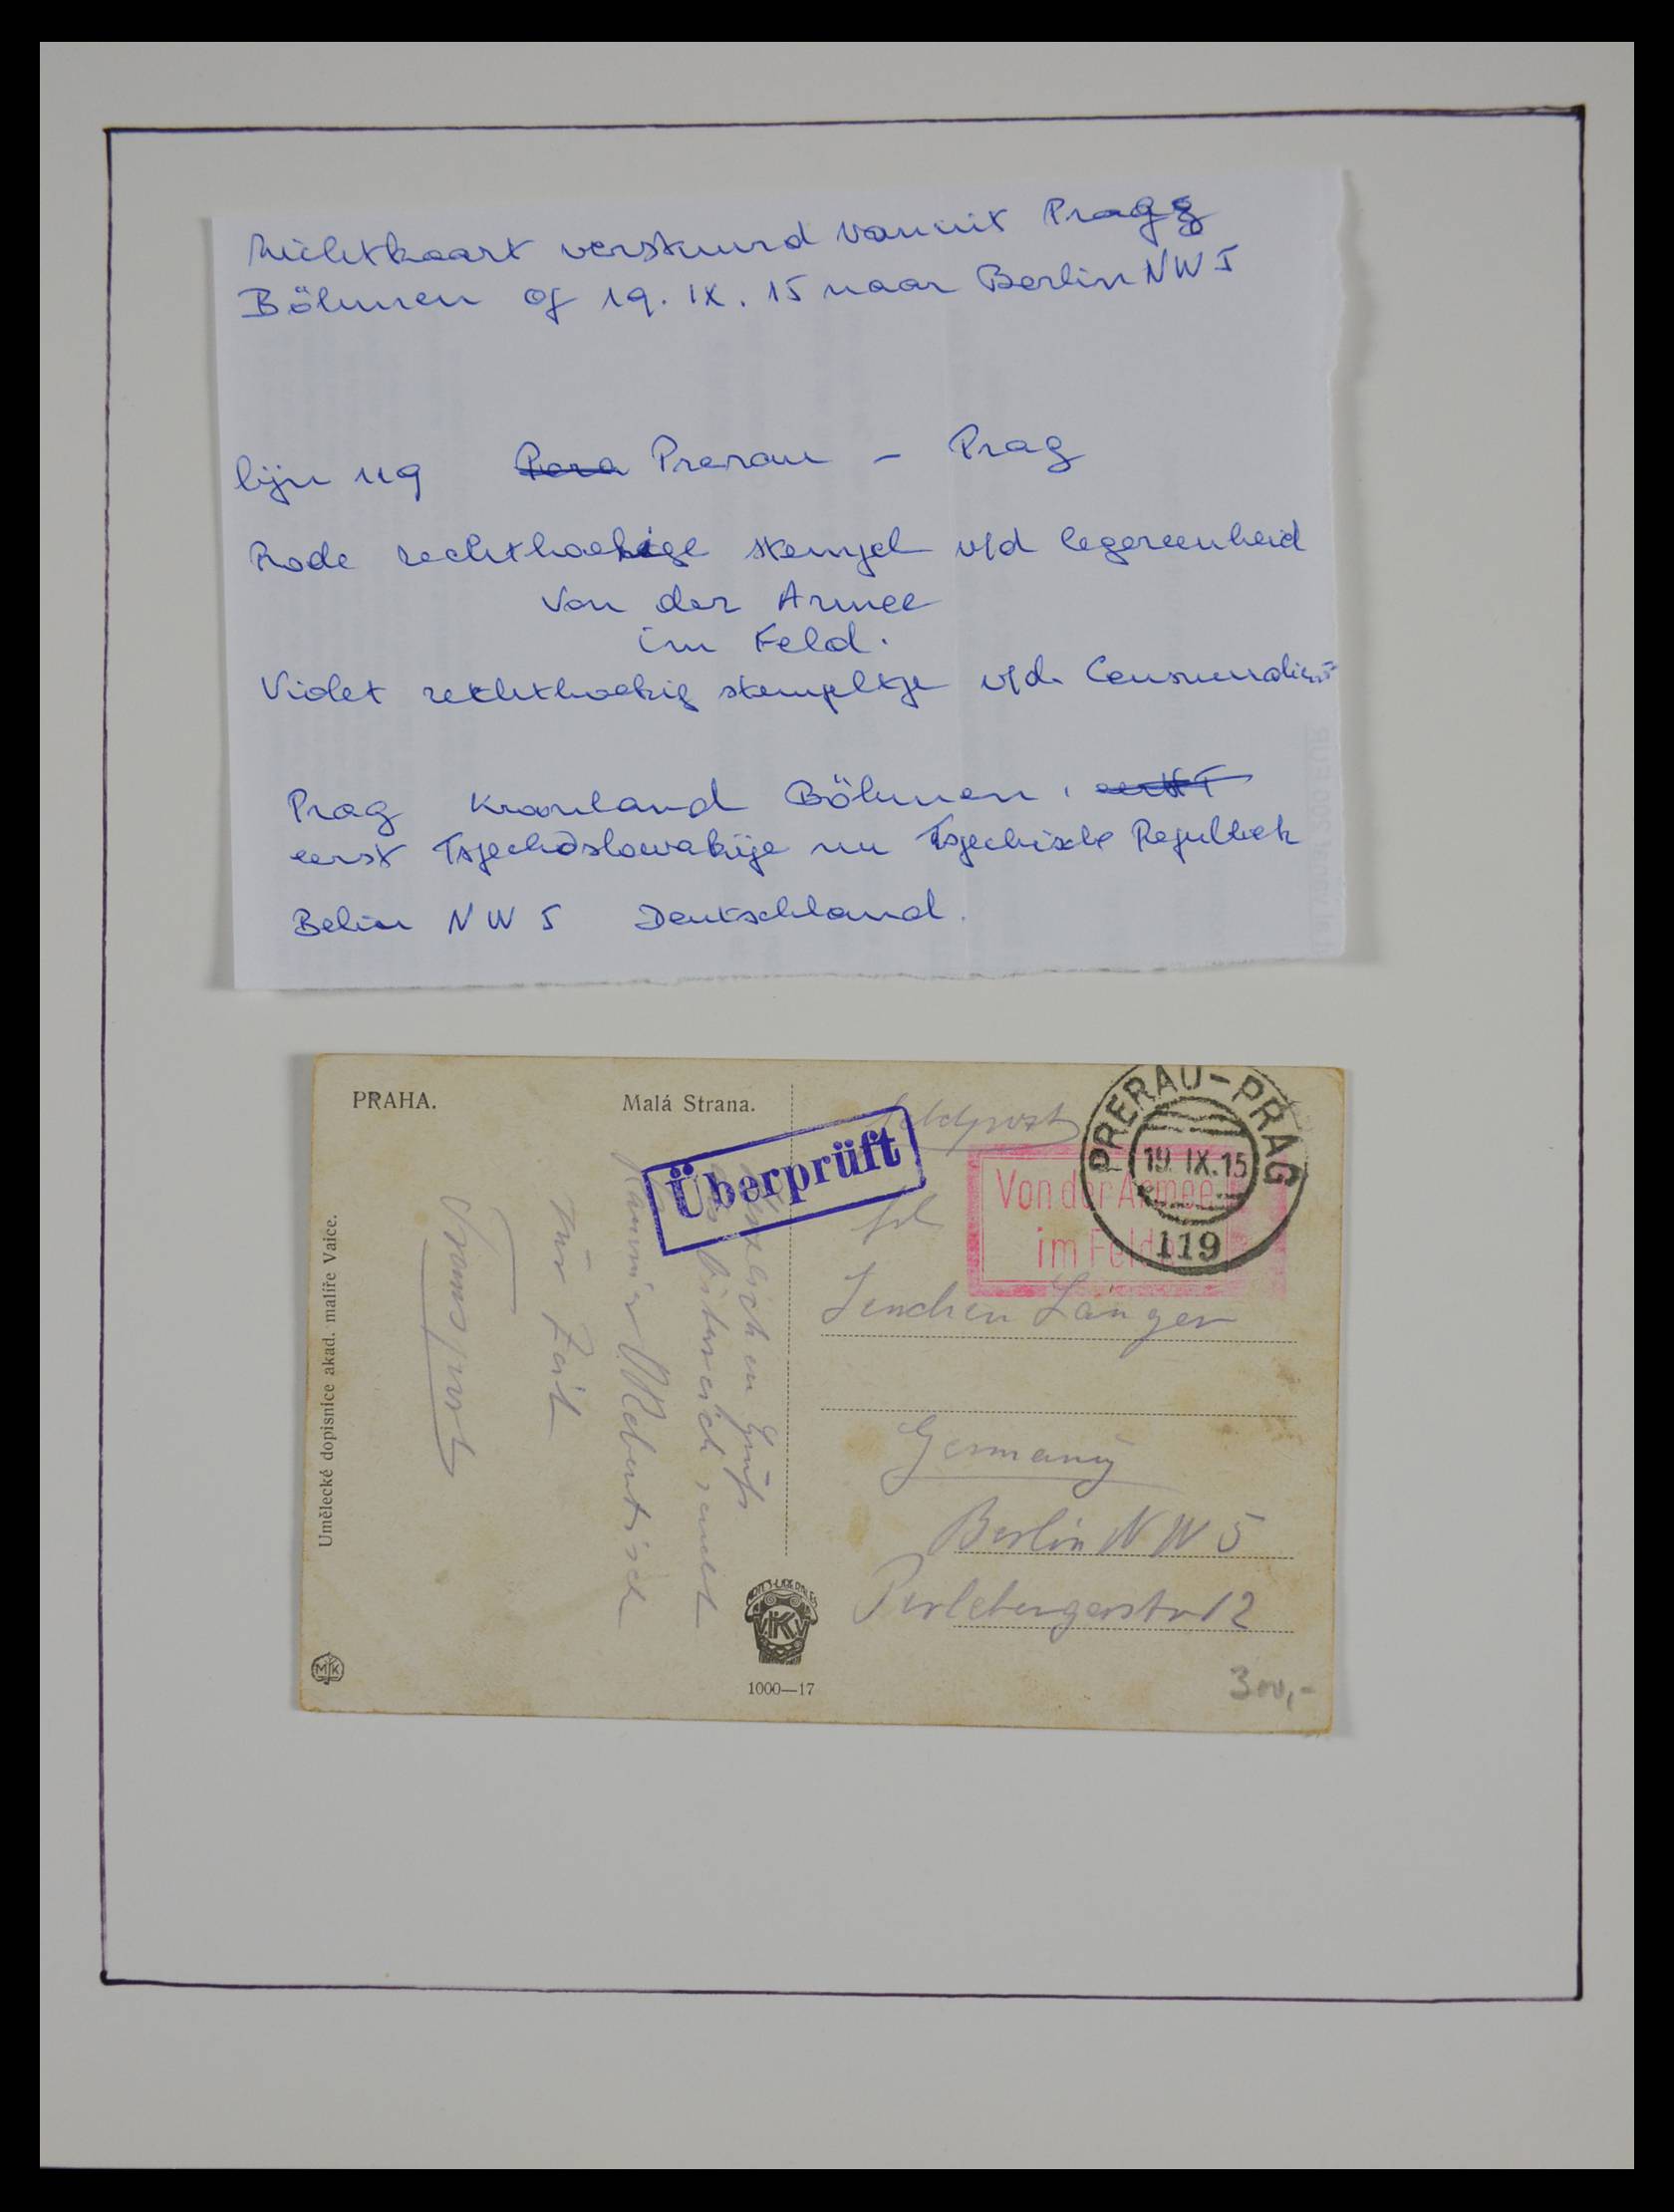 zichtkaart verstuurd vanuit Prag
Böhmen of 19. IX. 15 naar Berlin NW 5
lijn 119 Prerau - Prag
Rode rechthoekige stempel v/d legereenheid
Von der Armee
im Feld.
Violet rechthoekig stempeltje v/d. Censuurdienst
Prag Kronland Böhmen,
eerst Tsjechoslowakije nu Tsjechische Republiek
Belin NW 5 Deutschland.
PRAHA. Malá Strana.
Umělecké dopisnice akad. malíře Vaice.
Überprüft
Feldpost
Von der Armee
im Felde
PRERAU-PRAG
19. IX. 15
119
Länger
Germany
Berlin NW 5
Perlebergerstr 12
Herzlichen Gruß
aus Österreich sendet
Zur Zeit
Transport
V.K.K.V.
MJK
1000—17
300,-